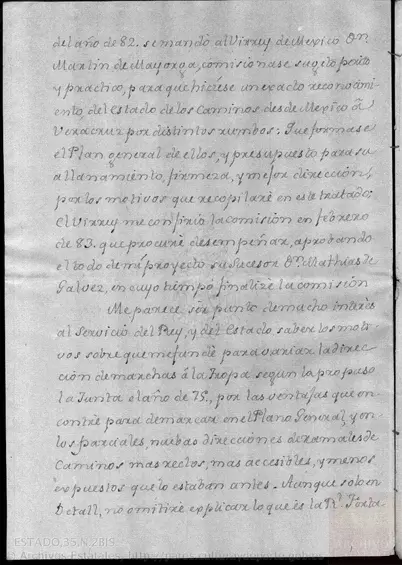 del año de 82. se mandó al Virrey de Mexico Dn.
Martin de Mayorga, comisionase sugeto perito
y practico, para que hiciese un exacto reconocimi-
ento, del Estado de los Caminos desde Mexico á
Veracruz por distintos rumbos: Que formase
el Plan general de ellos, y presupuesto para su
allanamiento, firmeza, y mejor direccion,
por los motivos que recopilaré en este tratado;
el Virrey me confirió la comision en febrero
de 83. que procuré desempeñar, aprobando
el todo de mi proyecto su sucesor Dn. Mathias de
Galvez, en cuyo tiempo finalizé la comision
Me parece ser punto de mucho interés
al Servicio del Rey, y del Estado saber los moti-
vos sobre que me fundé para variar la direc-
cion de marchas á la Tropa segun lo propuso
la Junta el año de 75, por las ventajas que en-
contré para demarcar en el Plano General, y en
los parciales, nuebas direcciones de ramales de
Caminos mas rectos, mas accesibles, y menos
expuestos que lo estaban antes. Aunque solo en
Detall, no omitiré explicar lo que es la Rl. Forta
ESTADO,35,N.28|9